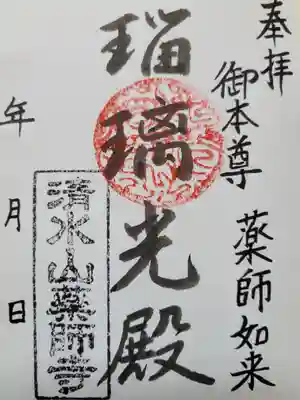 奉拝
御本尊 薬師如来
瑠璃光殿
清水山薬師寺
年 月 日